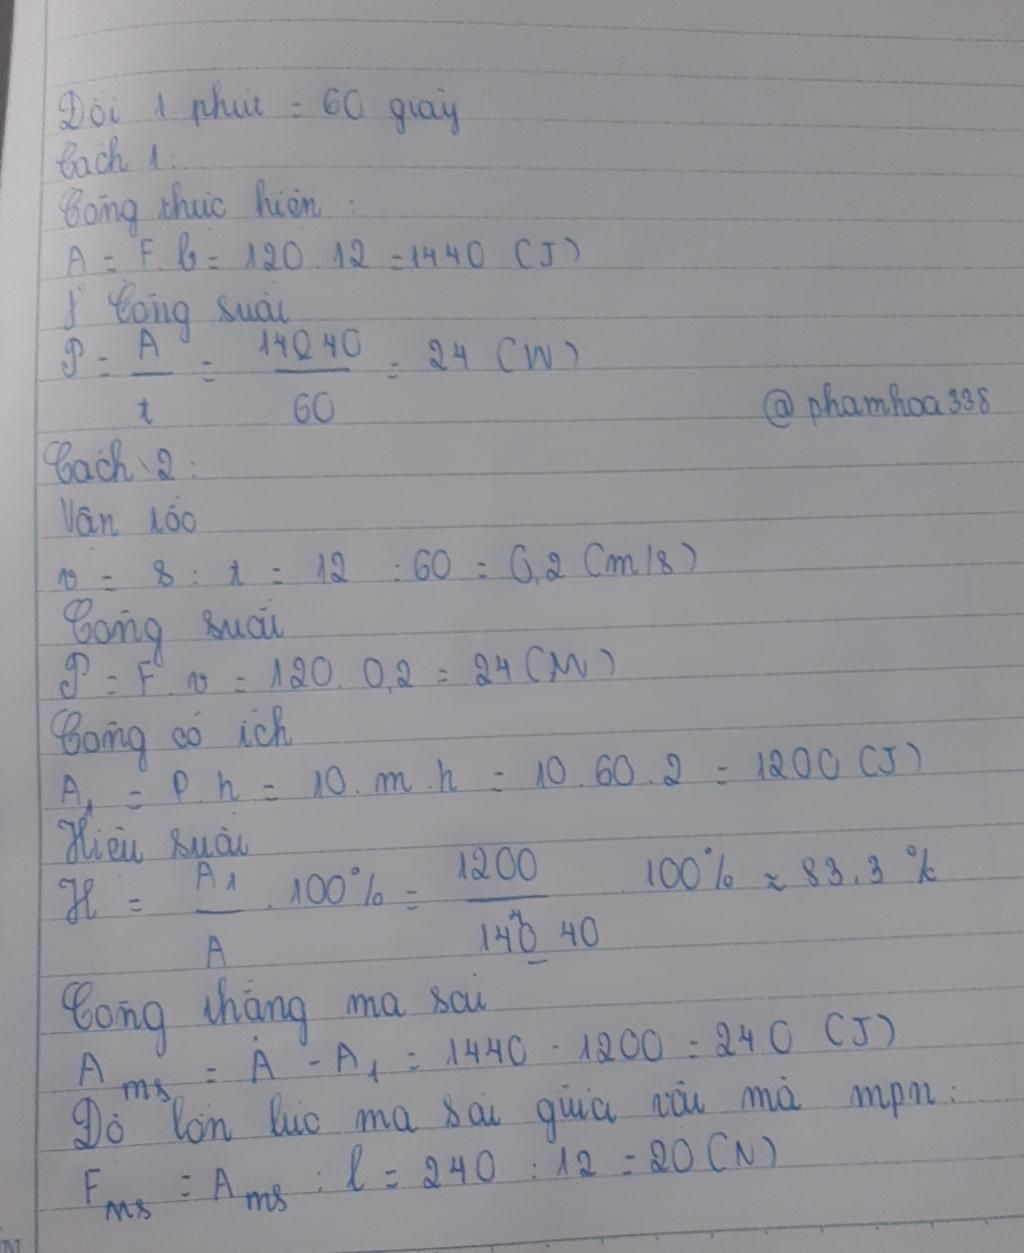 Đổi 1 phút = 60 giây
Cách 1:
Công thực hiện :
A = F.l = 120.12 = 1440 (J)
Công suất
P = A/t = 1440/60 = 24 (W)
@phamhoa338
Cách 2:
Vận tốc
v = s : t = 12 : 60 = 0,2 (m/s)
Công suất
P = F.v = 120.0,2 = 24 (W)
Công có ích
A₁ = P.h = 10.m.h = 10.60.2 = 1200 (J)
Hiệu suất
H = A₁/A . 100% = 1200/1440 100% ≈ 83.3 %
Công thắng ma sát
Ams = A - A₁ = 1440 - 1200 = 240 (J)
Độ lớn lực ma sát giữa vật mà mpn:
Fms = Ams : l = 240 : 12 = 20 (N)